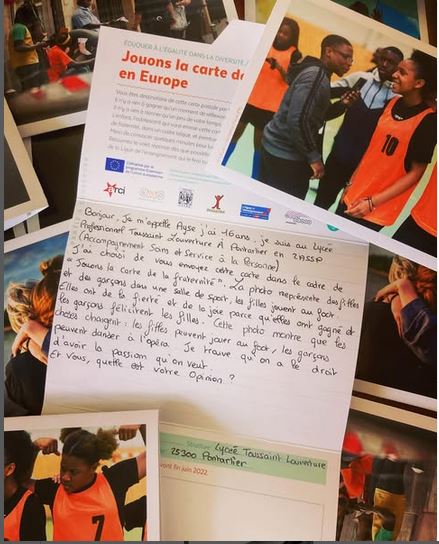 ÉDUQUER À L'ÉGALITÉ DANS LA DIVERSITÉ
Jouons la carte de
en Europe
Vous êtes destinataire de cette carte postale
Il n'y a rien à gagner qu'un moment de
Il n'y a rien à donner qu'un peu de votre temps.
rci
Bonjour, Je m'appelle Ayse j'ai 16 ans, je suis au lycée
Professionnel Toussaint Louverture À Pontarlier en 2ASSP
(Accompagnement Soins et Service à la Personne)
J'ai choisi de vous envoyez cette carte dans le cadre de
"Jouons la carte de la fraternité". La photo représente des filles
et des garçons dans une salle de sport, les filles jouent au foot.
Elles ont de la fierté et de la joie parce qu'elles ont gagné et
les garçons félicitent les filles. Cette photo montre que les
choses changent : les filles peuvent jouer au foot, les garçons
peuvent danser à l'opéra. Je trouve qu'on a le droit
d'avoir la passion qu'on veut.
Et vous, quelle est votre opinion ?
Structure : Lycée Toussaint Louverture
25300 Pontarlier
avant fin juin 2022
10
7